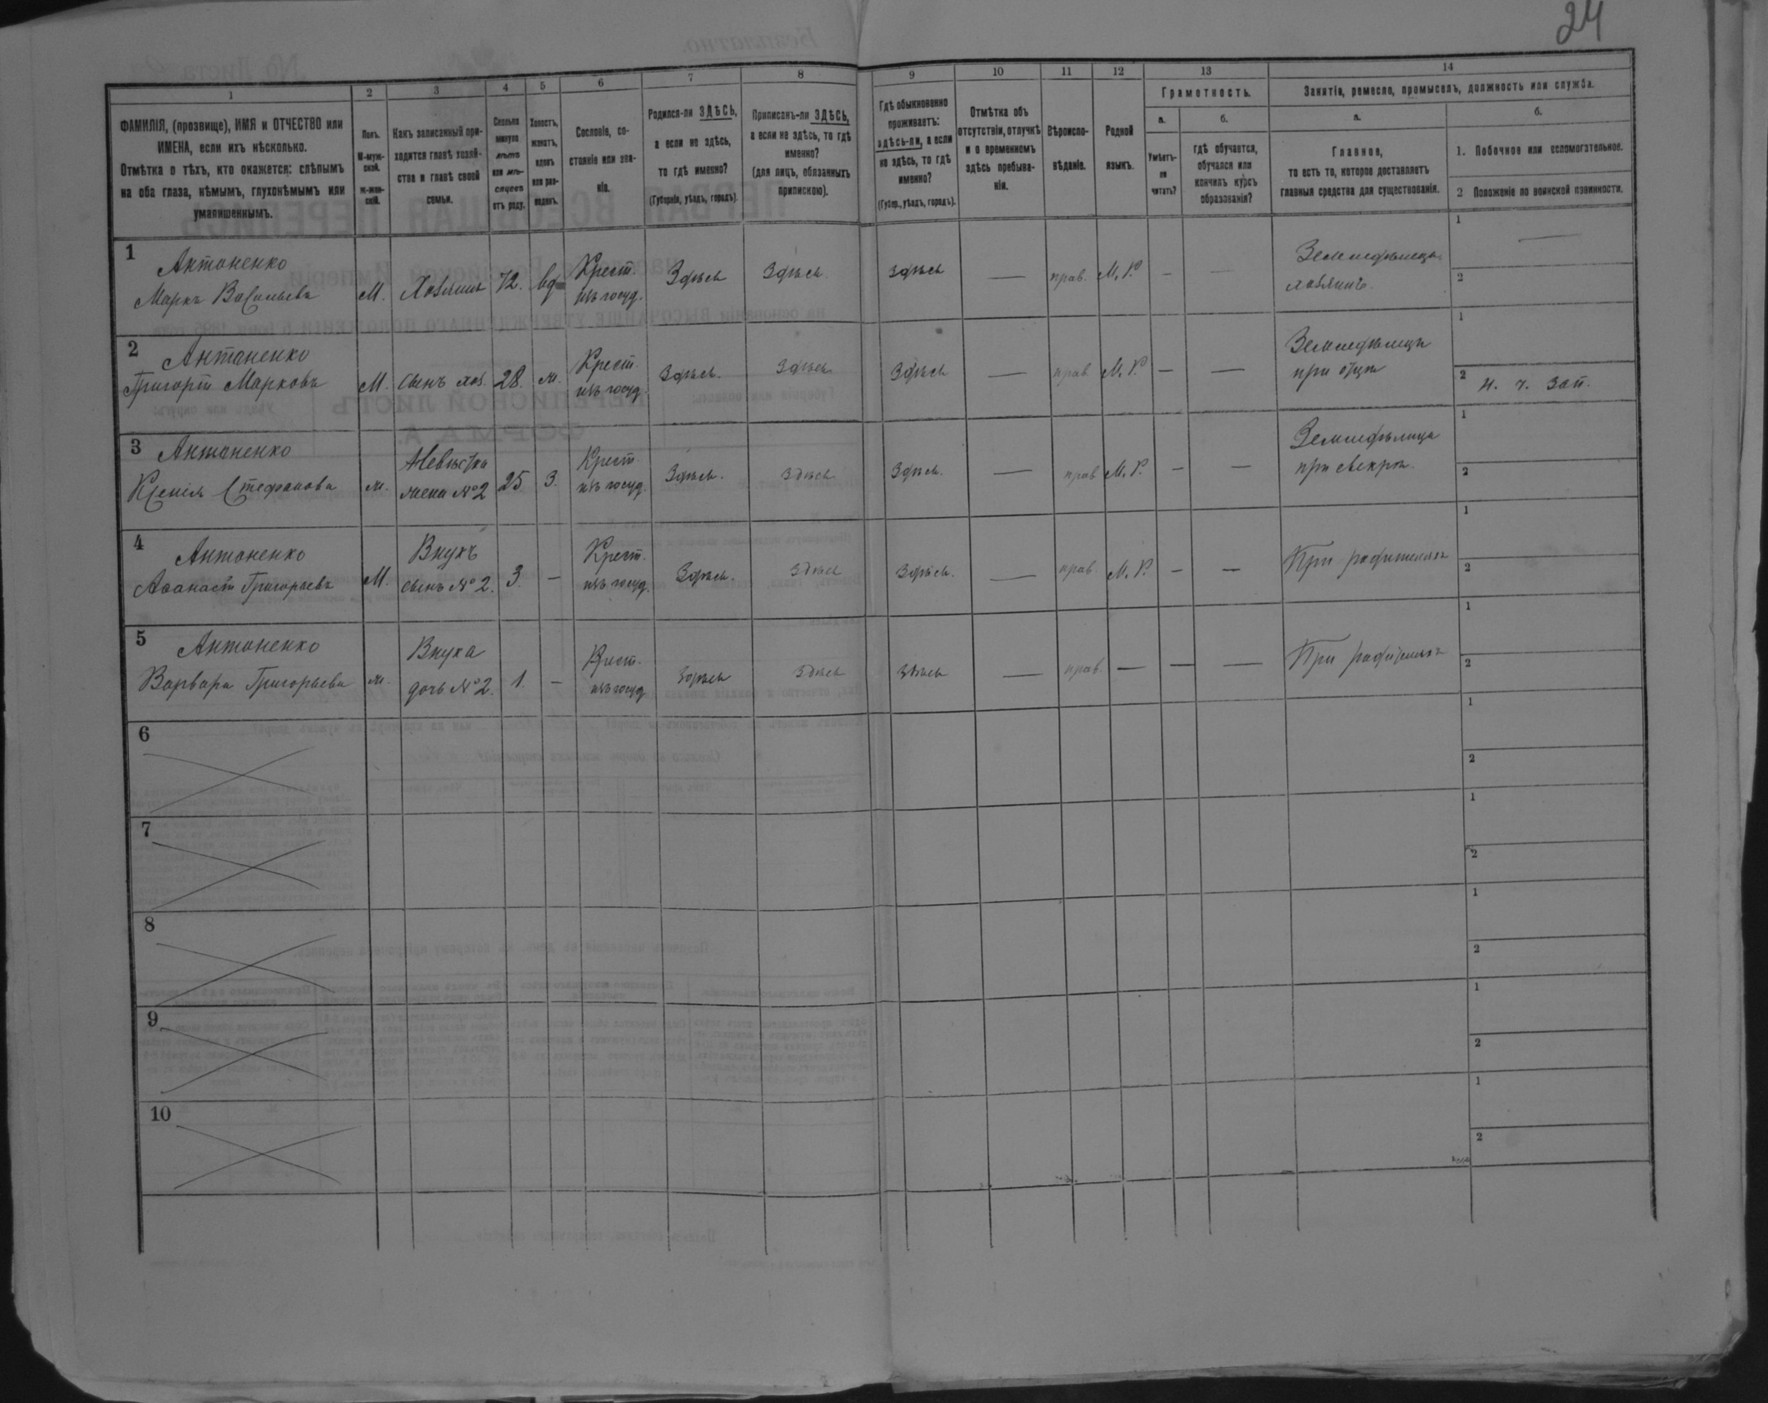 24
1
2
3
4
5
6
7
8
9
10
11
12
13
14
ФАМИЛІЯ, (прозвище), ИМЯ и ОТЧЕСТВО или
ИМЕНА, если ихъ нѣсколько.
Отмѣтка о тѣхъ, кто окажется: слѣпымъ
на оба глаза, нѣмымъ, глухонѣмымъ или
умалишеннымъ.
Полъ.
М-муж-
ской.
ж-жен-
скій.
Какъ записанный при-
ходится главѣ хозяй-
ства и главѣ своей
семьи.
Сколько
минуло
лѣтъ
или мѣ-
сяцевъ
отъ роду.
Холостъ,
женатъ,
вдовъ
или раз-
веденъ.
Сословіе, со-
стояніе или зва-
ніе.
Родился-ли ЗДѢСЬ,
а если не здѣсь,
то гдѣ именно?
(Губернія, уѣздъ, городъ).
Приписанъ-ли ЗДѢСЬ,
а если не здѣсь, то гдѣ
именно?
(для лицъ, обязанныхъ
припискою).
Гдѣ обыкновенно
проживаетъ:
здѣсь-ли, а если
не здѣсь, то гдѣ
именно?
(Губер., уѣздъ, городъ).
Отмѣтка объ
отсутствіи, отлучкѣ
и о временномъ
здѣсь пребыва-
ніи.
Вѣроиспо-
вѣданіе.
Родной
языкъ.
Грамотность.
а.
Умѣетъ-
ли
читать?
б.
гдѣ обучается,
обучался или
кончилъ курсъ
образованія?
Занятіе, ремесло, промыселъ, должность или служба.
а.
Главное,
то есть то, которое доставляетъ
главныя средства для существованія.
б.
1. Побочное или вспомогательное.
2 Положеніе по воинской повинности.
1
Антоненко
Маркъ Васильевъ
М.
Хозяинъ
72.
вд
Крест.
изъ госуд.
Здѣсь
Здѣсь
Здѣсь
—
прав.
М. Р.
—
—
Земледѣлецъ
хозяинъ.
1 —
2
2
Антоненко
Григорій Марковъ
М.
сынъ хоз.
28.
ж.
Крест.
изъ госуд.
Здѣсь.
Здѣсь
Здѣсь
—
прав
М. Р.
—
—
Земледѣлецъ
при отцѣ
1
2 н. ч. зап.
3
Антоненко
Ксенія Стефанова
ж.
Невѣстка
жена №2
25
З.
Крест.
изъ госуд.
Здѣсь.
Здѣсь
Здѣсь.
—
прав
М. Р.
—
—
Земледѣлица
при свекрѣ.
1
2
4
Антоненко
Аѳанасій Григорьевъ
М.
Внукъ
сынъ №2.
3.
—
Крест.
изъ госуд.
Здѣсь.
Здѣсь
Здѣсь.
—
прав
М. Р.
—
—
При родителяхъ
1
2
5
Антоненко
Варвара Григорьева
ж.
Внука
дочь №2.
1.
—
Крест.
изъ госуд
Здѣсь
Здѣсь
Здѣсь
—
прав.
—
—
—
При родителяхъ
1
2
6
1
2
7
1
2
8
1
2
9
1
2
10
1
2